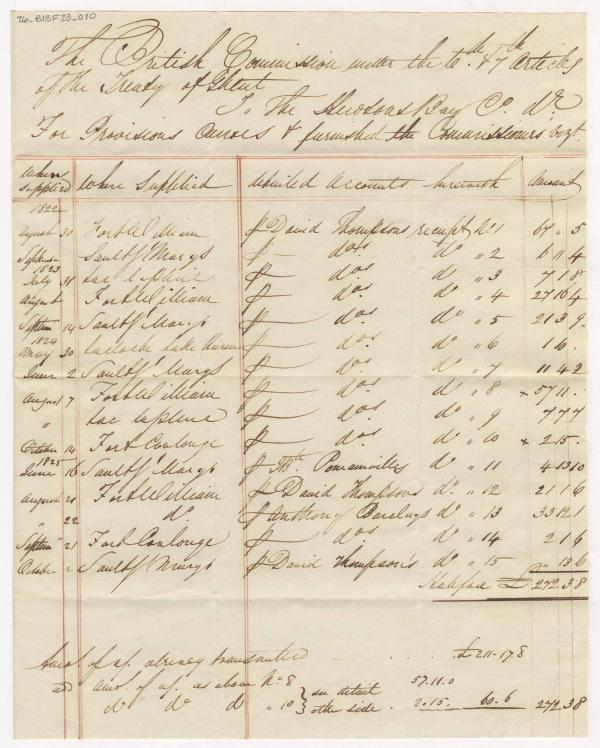 26-B13F23-010
The British Commission under the 6th & 7th Articles
of the Treaty of Ghent
To The Hudsons Bay Co Dr
For Provisions Canoes & furnished the Commissioners Vizt
When Supplied Where Supplied detailed Accounts herewith Amount
1822
August 30 Fort William p David Thompsons receipt No 1 67 " 5
September Sault St Marys p - dos do " 2 6 11 4
1823
July 31 Lac la Pluie p dos do " 3 7 1 8
August Fort William p dos do " 4 27 16 4
Septem 14 Sault St Marys p dos do " 5 21 3 9
1824
May 30 Lake Huron p dos do " 6 1 6
June 2 Sault St Marys p dos do " 7 11 4 2
August 7 Fort William p dos do " 8 + 57 11
" Lac la pluie p dos do " 9 7 7 7
October 14 Fort Coulonge p dos do " 10 + 2 15
1825
June 16 Sault St Marys p do 11 4 13 10
August 21 Fort William p David Thompsons do " 12 21 1 6
" 22 do p Anthony Barclays do " 13 33 12 1
Septem 21 Fort Coulonge p dos do " 14 2 1 6
October 2 Sault St Marys p David Thompson's do " 15 " 13 6
Halifax £ 272 3 8
Amot of a/. already transmitted - - - £211.17.8
add Amt. of a/. as above No 8 } see detail 57.11.0
do do d " 10 } other side 2.15. 60.6 272 3 8